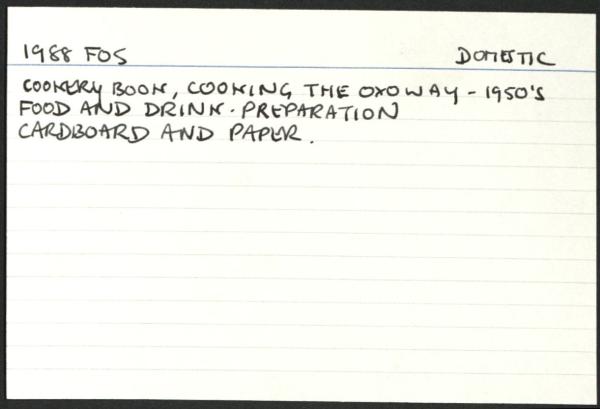 1988 FOS DOMESTIC
COOKERY BOOK, COOKING THE OXO WAY - 1950'S
FOOD AND DRINK. PREPARATION
CARDBOARD AND PAPER.